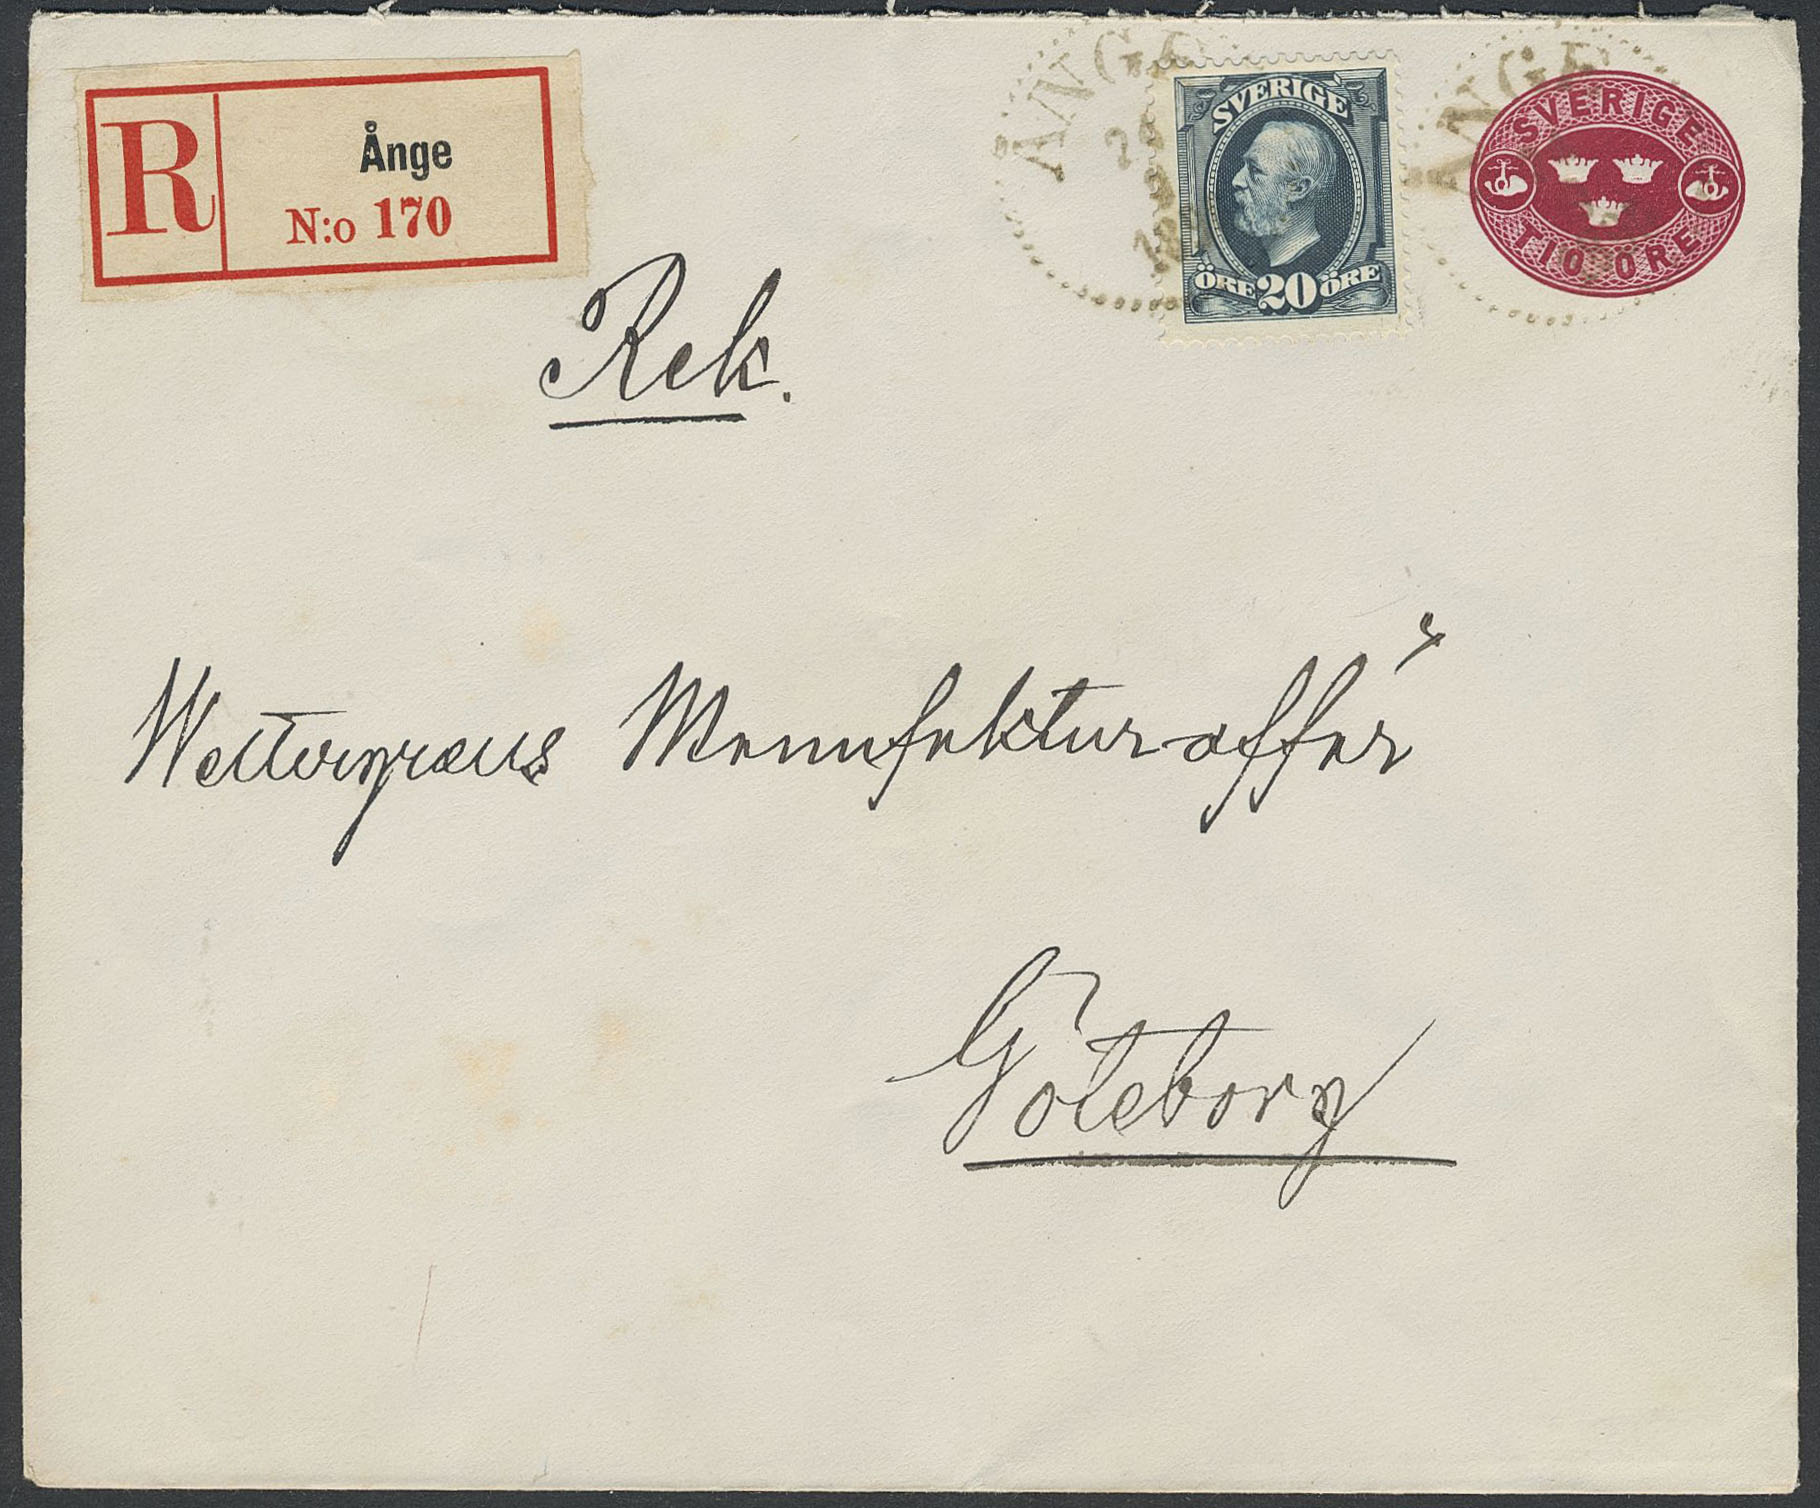 R
Ånge
N:o 170
ÅNGE
SVERIGE
ÖRE 20 ÖRE
ÅNGE
SVERIGE
TIO ÖRE
Rek.
Wettergrens Manufakturaffär
Göteborg